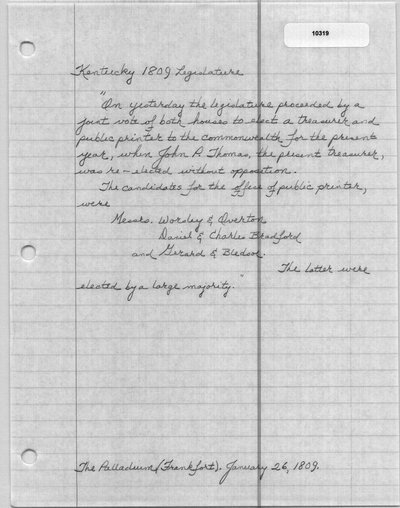 10319
Kentucky 1809 Legislature
"On yesterday the legislature proceeded by a
joint vote of both houses to elect a treasurer and
public printer to the commonwealth for the present
year, when John P. Thomas, the present treasurer,
was re-elected without opposition.
The candidates for the office of public printer,
were
Messrs. Worsley & Overton
Daniel & Charles Bradford
and Gerard & Bledsoe.
The latter were
elected by a large majority."
The Palladium (Frankfort). January 26, 1809.